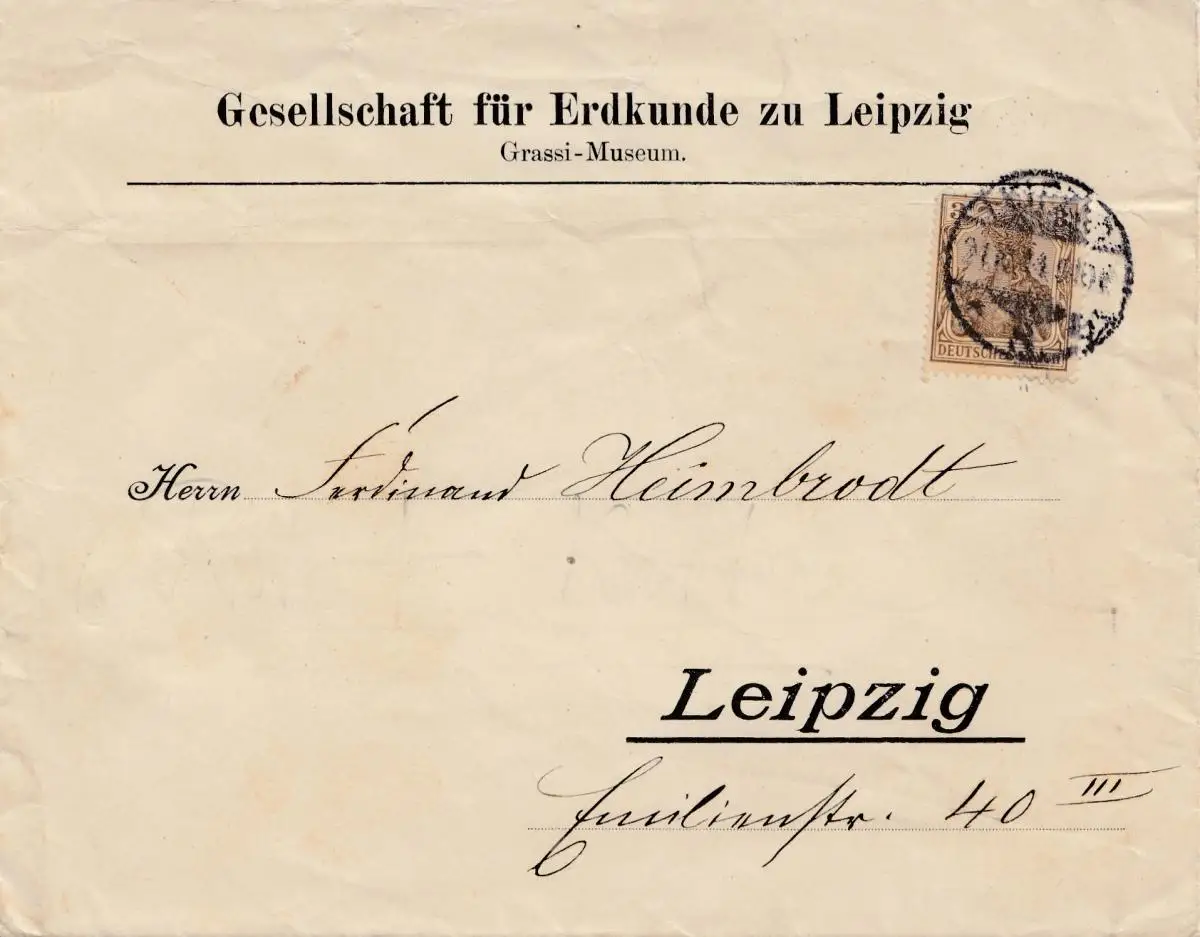 Gesellschaft für Erdkunde zu Leipzig
Grassi-Museum.
3
DEUTSCHES REICH
Herrn Ferdinand Heimbrodt
Leipzig
Emilienstr. 40 III